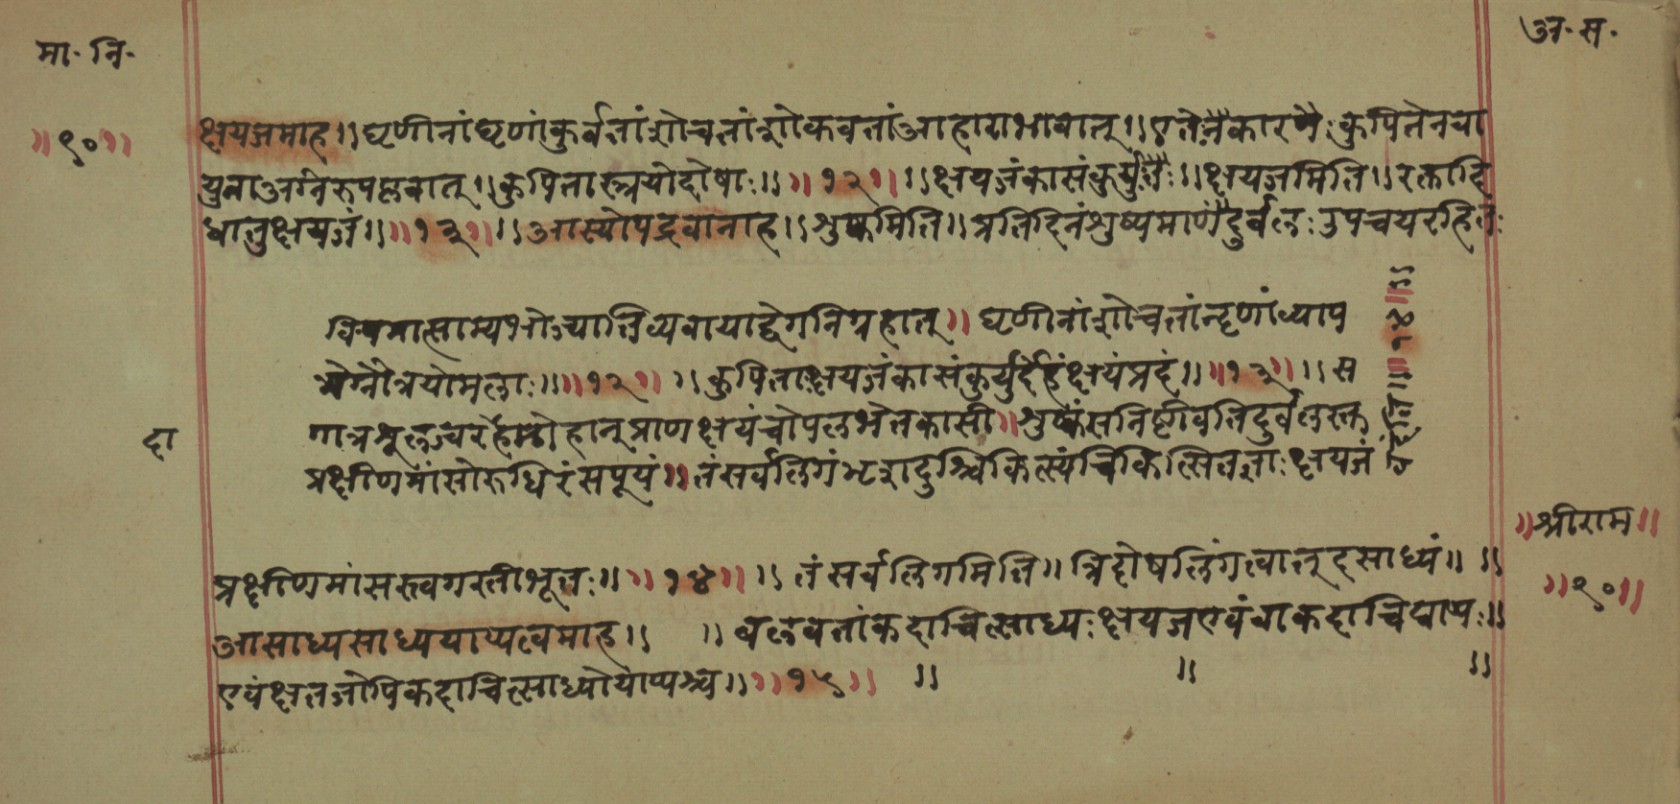 मा॰ नि॰
अ॰ स॰
॥९०॥
क्षयजमाह॥ घृणीनां घृणां कुर्वतां शोचतां शोकवतां आहाराभावात्॥ एतैनैकारणैः कुपितेनवा
युना अग्नेरुपप्लवात्॥ कुपितास्त्रयोदोषाः॥॥१२॥॥ क्षयजं कासं कुर्युः॥ क्षयजमिति॥ रक्तादि
धातुक्षयजं॥॥१३॥॥ अस्योपद्रवानाह॥ शुष्कमिति॥ प्रतिदिनं शुष्यमाणं दुर्बलः उपचयरहितः
विषमासाम्यभोज्यातिव्यवायाद्वेगनिग्रहात्॥ घृणीनां शोचतां नृणां व्याप
न्नेग्नौ त्रयोमलाः॥॥१२॥॥ कुपिताक्षयजं कासं कुर्युर्देहक्षयप्रदं॥॥१३॥॥ स
गात्रशूलज्वरदाहमोहान् प्राणक्षयं चोपलभेतकासी॥ शुष्कंसनिष्ठीवतिदुर्बलस्तु
दा
प्रक्षीणमांसोरुधिरं सपूयं॥ तं सर्वलिगं भृशदुश्चिकित्स्यं चिकित्सितज्ञाः क्षयजं
वदंति॥१४॥
॥श्रीराम॥
प्रक्षीणमांसस्त्वगस्तीभूतः॥॥१४॥॥ तं सर्वलिगमिति॥ त्रिदोषलिंगत्वात् दसाध्यं॥॥
॥९०॥
असाध्यसाध्ययाप्यत्वमाह॥ ॥ बलवतां कदाचित्साध्यः क्षयजएवंवाकदाचिद्याप्यः॥
एवंक्षतजोपिकदाचित्साध्योयाप्यश्च॥॥१५॥॥ ॥ ॥